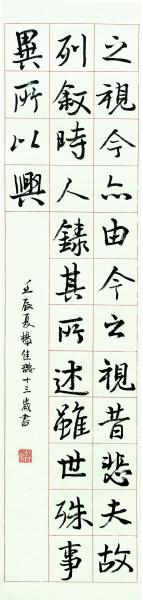 之視今亦由今之視昔悲夫故
列敘時人錄其所述雖世殊事
異所以興
壬辰夏楊佳璐十三歲書